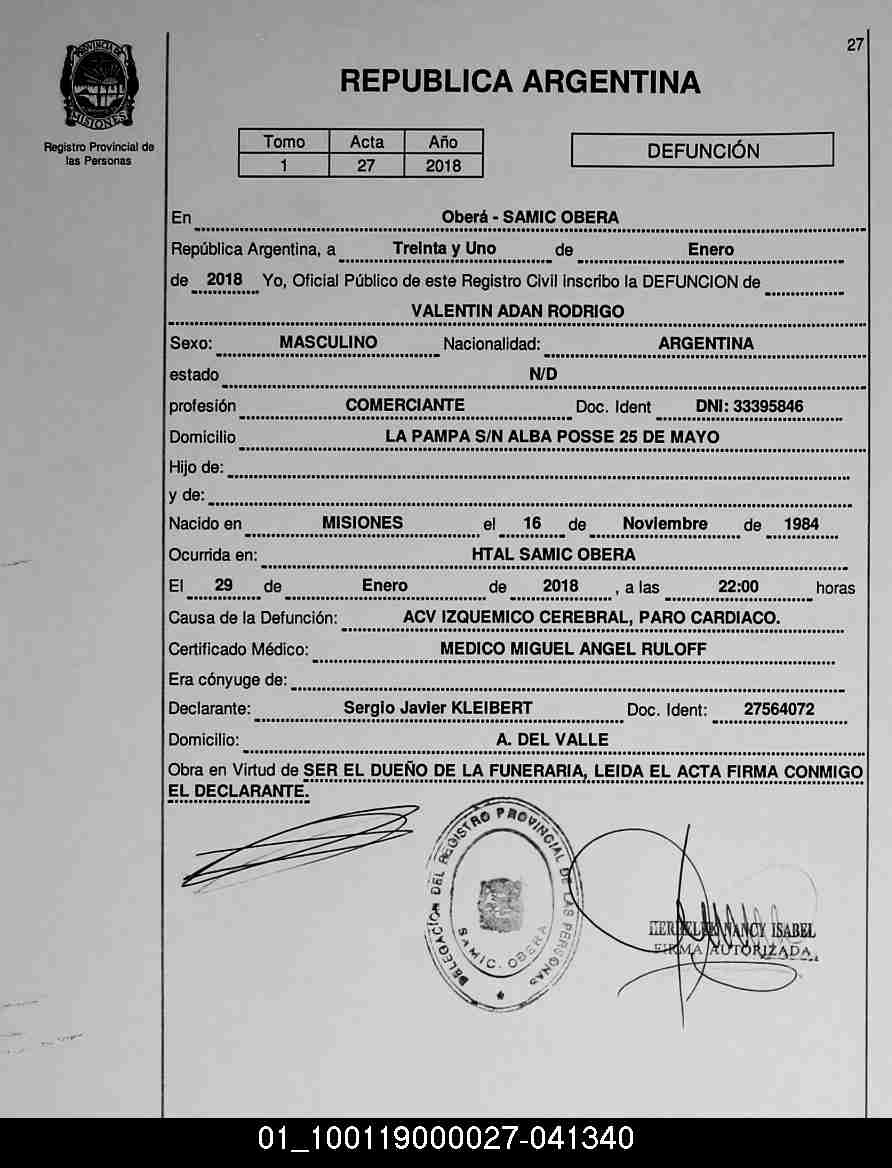 27
PROVINCIA DE
MISIONES
Registro Provincial de
las Personas
REPUBLICA ARGENTINA
Tomo Acta Año
1 27 2018
DEFUNCIÓN
En Oberá - SAMIC OBERA
República Argentina, a Treinta y Uno de Enero
de 2018 Yo, Oficial Público de este Registro Civil inscribo la DEFUNCION de
VALENTIN ADAN RODRIGO
Sexo: MASCULINO Nacionalidad: ARGENTINA
estado N/D
profesión COMERCIANTE Doc. Ident DNI: 33395846
Domicilio LA PAMPA S/N ALBA POSSE 25 DE MAYO
Hijo de:
y de:
Nacido en MISIONES el 16 de Noviembre de 1984
Ocurrida en: HTAL SAMIC OBERA
El 29 de Enero de 2018 , a las 22:00 horas
Causa de la Defunción: ACV IZQUEMICO CEREBRAL, PARO CARDIACO.
Certificado Médico: MEDICO MIGUEL ANGEL RULOFF
Era cónyuge de:
Declarante: Sergio Javier KLEIBERT Doc. Ident: 27564072
Domicilio: A. DEL VALLE
Obra en Virtud de SER EL DUEÑO DE LA FUNERARIA, LEIDA EL ACTA FIRMA CONMIGO
EL DECLARANTE.
DELEGACIÓN DEL REGISTRO PROVINCIAL DE LAS PERSONAS
SAMIC. OBERA
NANCY ISABEL
FIRMA AUTORIZADA
01_100119000027-041340